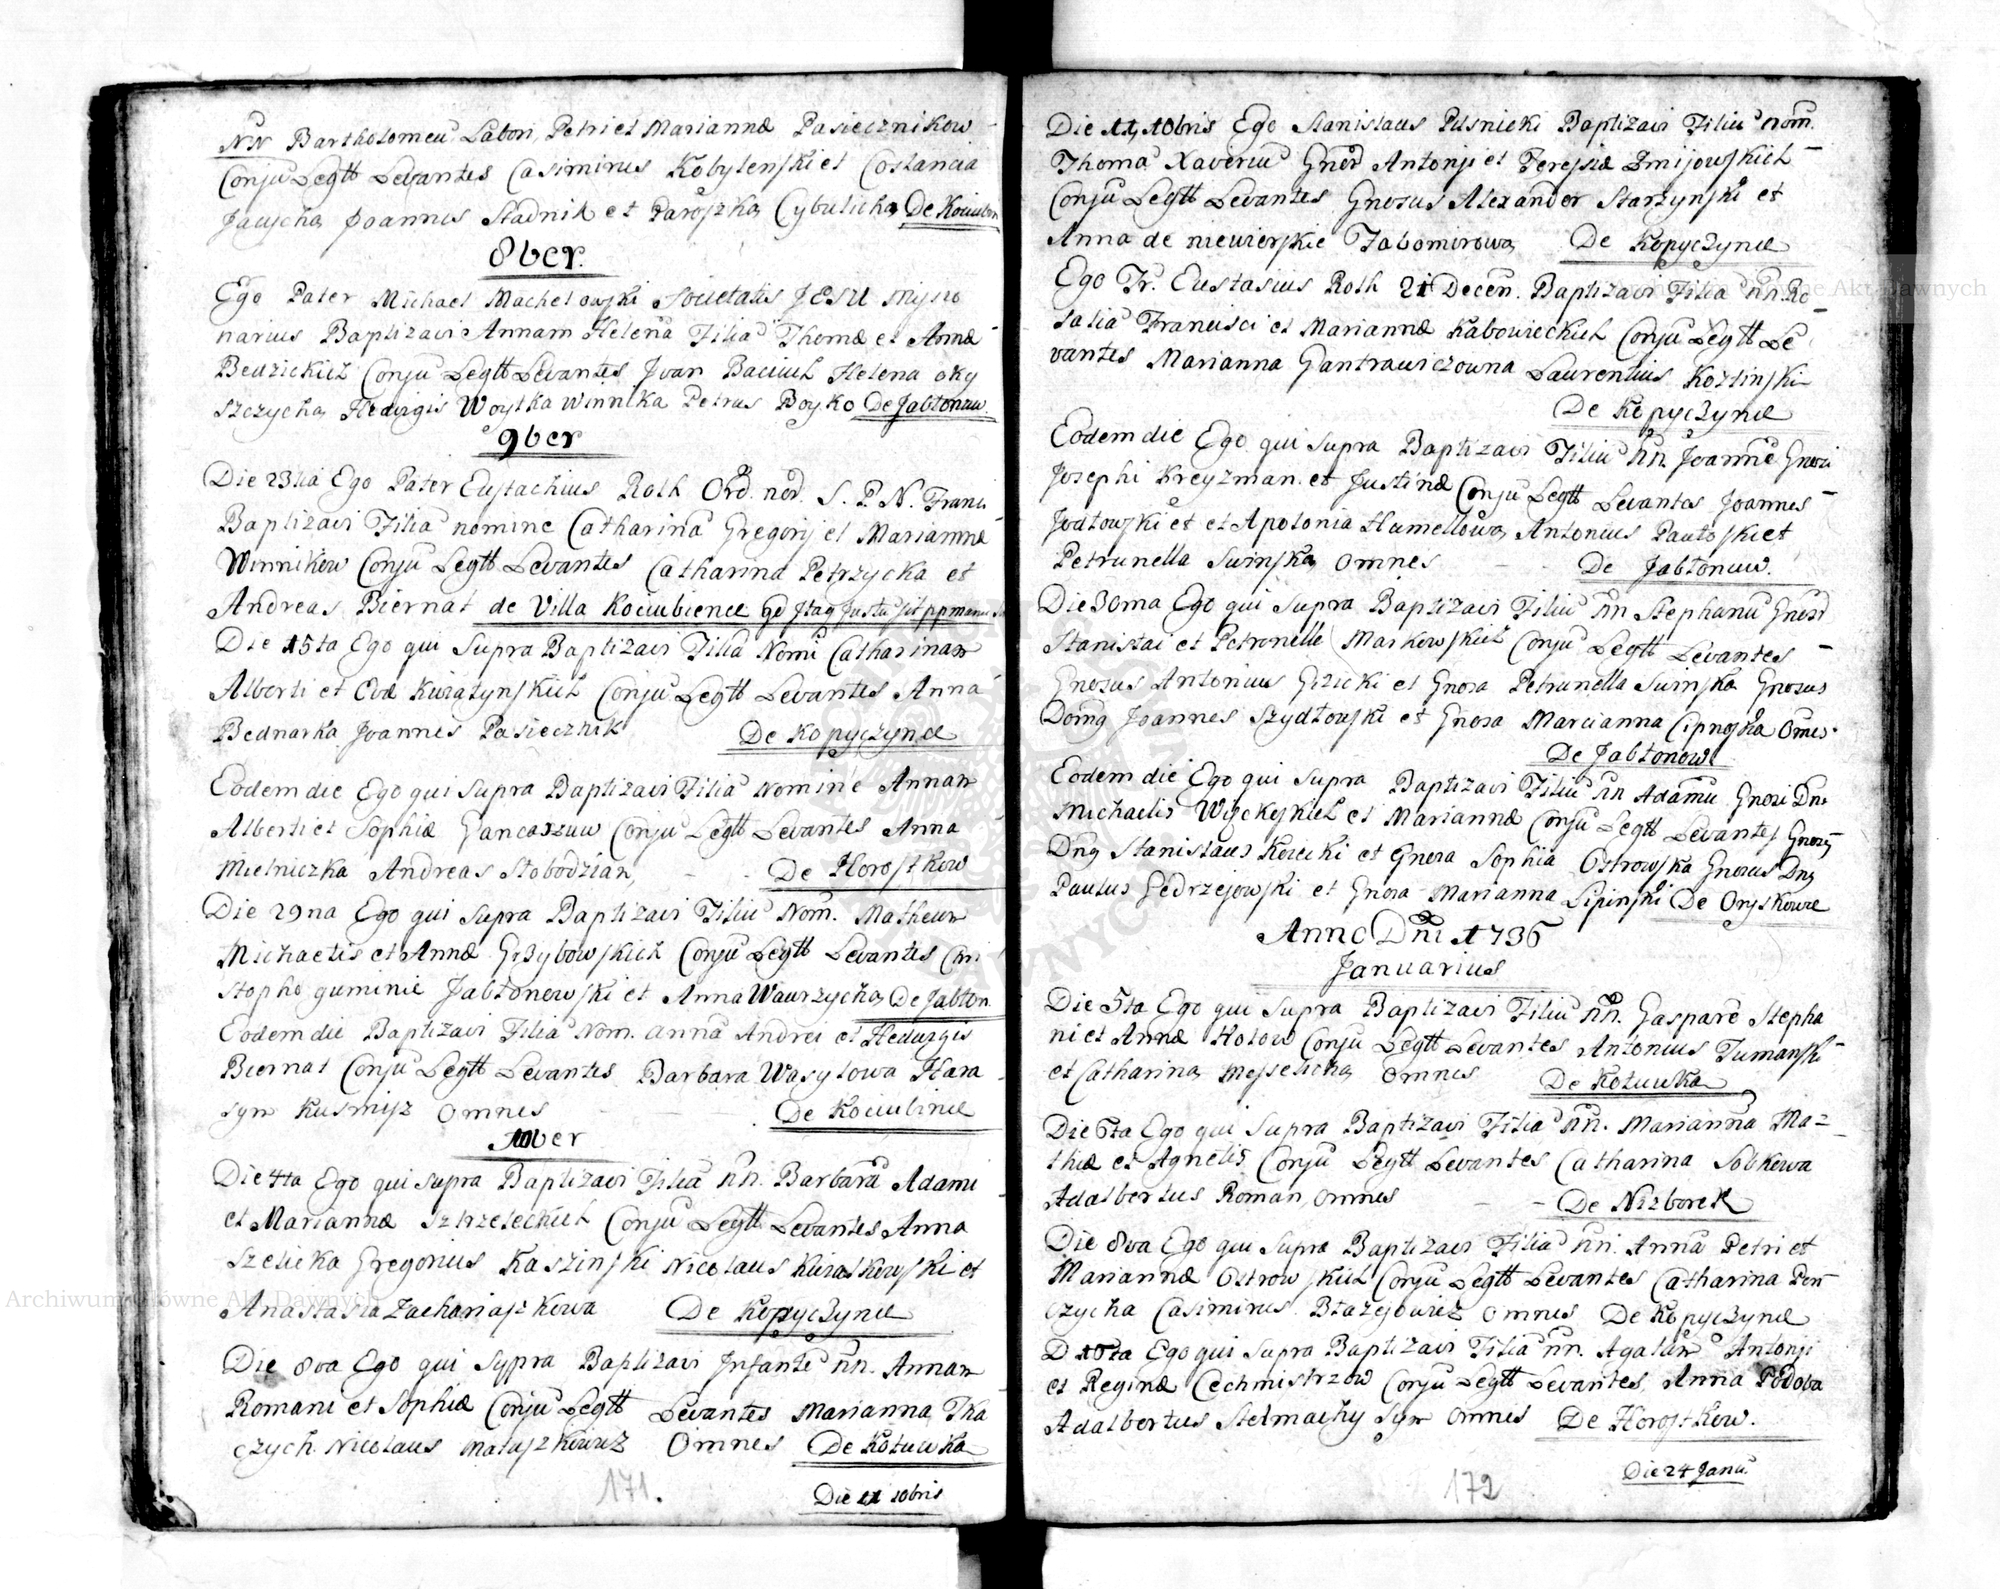 NN Bartholomeu Labori, Petri et Mariannæ Pasiecznikow
Conju Legtt Levantes Casimirus Kobylenski et Costancia
Jaujcha Joannes Stadnik et Paroszka Cybulicha De Kociubin
8ber.
Ego Pater Michael Machelowski Societatis JESU Misyio
narius Baptizavi Annam Helena Filia Thomæ et Annæ
Bedzickich Conju Legtt Levantes Jvan Baciuch Helena oky
szczycha Hedvigis Woytka Winnika Petrus Boyko De Jabłonow.
9ber
Die 23tia Ego Pater Eustachius Roth Ord. S. P. N. Franci
Baptizavi Filia nomine Catharina Gregorij et Mariannæ
Winnikow Conju Legtt Levantes Catharina Petrzycka et
Andreas Biernat de Villa Kociubience
Die 15ta Ego qui Supra Baptizavi Filia Nomi Catharinam
Alberti et Evæ Kurazynskich Conju Legtt Levantes Anna
Bednarka Joannes Pasiecznik De Kopyczynce
Eodem die Ego qui Supra Baptizavi Filia Nomine Annam
Alberti et Sophiæ Gancarzow Conju Legtt Levantes Anna
Mielniczka Andreas Słobodzian, De Horostkow
Die 29na Ego qui Supra Baptizavi Filiu Nom. Matheum
Michaelis et Annæ Grzybowskich Conju Legtt Levantes Chri
stopho guminie Jabłonowski et Anna Wawrzycha De Jabłon.
Eodem die Baptizavi Filia Nom. anna Andrei et Hedvigis
Biernat Conju Legtt Levantes Barbara Wasylowa Hara
sym Kusmisz omnes De Kociubince
10ber
Die 4ta Ego qui supra Baptizavi Filia nn. Barbara Adami
et Mariannæ Strzeleckich Conju Legtt Levantes Anna
Szelicka Gregorius Kaszinski Nicolaus Kwiatkowski et
Anastasia Zachariaszkowa De Kopyczynce
Die 8va Ego qui Suppra Baptizavi Infante nn. Annam
Romani et Sophiæ Conju Legtt Levantes Marianna Tka
czych Nicolaus Matuszkiewicz Omnes De Kotuwka
171.
Die 11 10bris
Die 11, 10bris Ego Stanislaus Pilsnicki Baptizavi Filiu nom.
Thoma Xaveriu Gner Antonji et Teresiæ Zmijowskich
Conju Legtt Levantes Gnosus Alexander Starzynski et
Anna de niewierskie Jabomirowa De Kopyczynce
Ego Fr. Eustasius Roth 21 Decem. Baptizavi Filia nn. Ro
salia Francisci et Mariannæ Kabowieckich Conju Legtt Le
vantes Marianna Gantrawiczowna Laurentius Kozlinski
De Kopyczynce
Eodem die Ego qui supra Baptizavi Filiu nn. Joanne Gnosi
Josephi Kreyzman et Justinæ Conju Legtt Levantes Joannes
Jodłowski et et Apolonia Humellowa Antonius Pawłoski et
Petrunella Swinska omnes De Jabłonow.
Die 30ma Ego qui Supra Baptizavi Filiu nn Stephanu Gnosi
Stanislai et Petronelle Markowskich Conju Legtt Levantes
Gnosus Antonius Gizicki et Gnosa Petrunella Swinska Gnosus
Domg Joannes Szydłowski et Gnosa Marcianna Cipnoska Omes.
De Jabłonow
Eodem die Ego qui Supra Baptizavi Filiu nn Adamu Gnosi Dni
Michaelis Wyckeskich et Mariannæ Conju Legtt Levantes Gnosg
Dng Stanislaus Korecki et Gnosa Sophia Ostrowska Gnosus Dng
Paulus Gedrzejowski et Gnosa Marianna Lipinski De Oryszkowce
Anno Dni 1736
Januarius
Die 5ta Ego qui Supra Baptizavi Filiu nn. Gaspare Stepha
ni et Annæ Hotow Conju Legtt Levantes Antonius Tumanski
et Catharina Messelicha omnes De Kotuwka
Die 6ta Ego qui Supra Baptizavi Filia nn. Marianna Ma=
thiæ et Agnetis Conju Legtt Levantes Catharina Sobkowa
Adalbertus Roman, omnes De Nizborek
Die 8va Ego qui Supra Baptizavi Filia nn. Anna Petri et
Mariannæ Ostrowskich Conju Legtt Levantes Catharina Pon
czycha Casimirus Błazejowicz omnes De Kopyczynce
D 10ta Ego qui Supra Baptizavi Filia nn. Agatam Antonji
et Reginæ Cechmistrzow Conju Legtt Levantes Anna Podoba
Adalbertus Stelmachy Syn omnes De Horostkow.
172
Die 24 Janu.
Archiwum Główne Akt Dawnych
Archiwum Główne Akt Dawnych